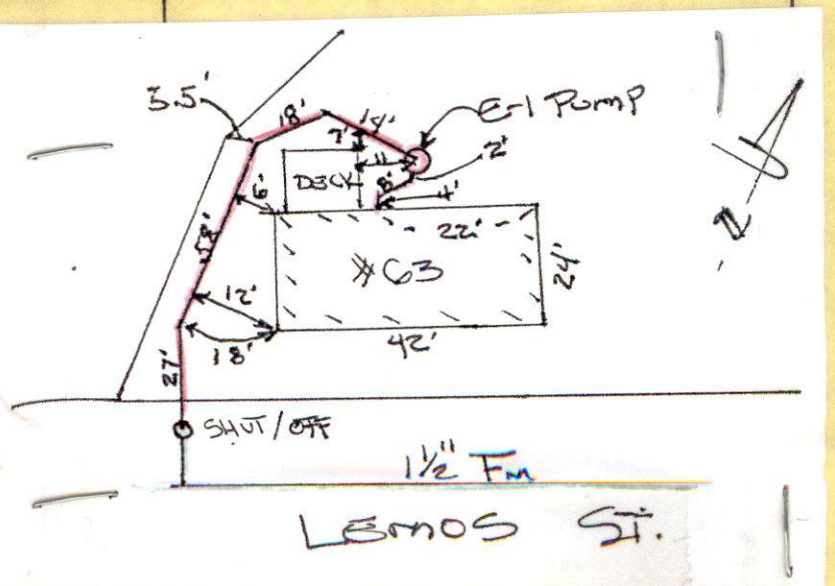 3.5'
18'
E-1 PUMP
7'
11
2'
DECK
8'
4'
6'
22'
#63
24'
12'
18'
42'
27'
SHUT/OFF
1½" Fm
LEMOS ST.